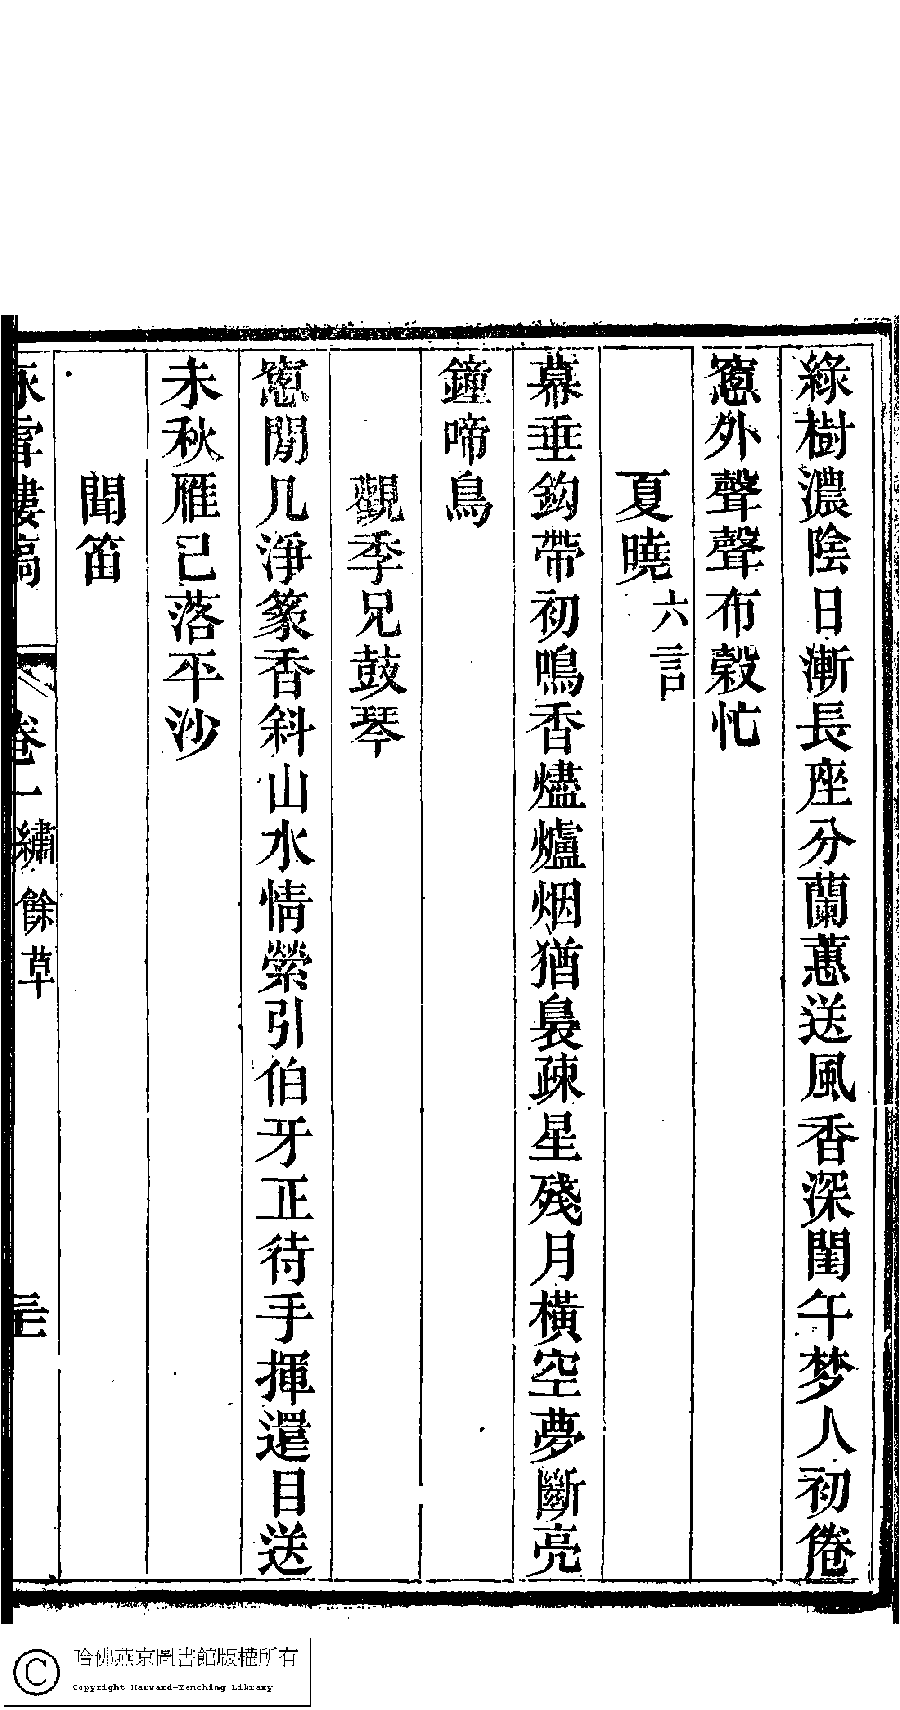 綠樹濃陰日漸長座分蘭蕙送風香深閨午梦人初倦
窻外聲聲布穀忙
夏曉六言
幕垂鈎帶初鳴香燼爐烟猶裊疎星殘月橫空夢斷亮
鐘啼鳥
觀季兄鼓琴
窻閒几淨篆香斜山水情縈引伯牙正待手揮還目送
未秋雁已落平沙
聞笛
雪樓稿
卷一繡餘草
二十二
哈佛燕京圖書館版權所有
Copyright Harvard-Yenching Library